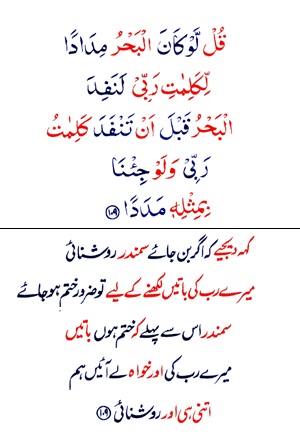 قُلْ لَّوْ كَانَ الْبَحْرُ مِدَادًا
لِّكَلِمٰتِ رَبِّیْ لَنَفِدَ
الْبَحْرُ قَبْلَ اَنْ تَنْفَدَ كَلِمٰتُ
رَبِّیْ وَلَوْ جِئْنَا
بِمِثْلِهٖ مَدَدًا ۝۱۰۹
کہہ دیجیے کہ اگر بن جائے سمندر روشنائی
میرے رب کی باتیں لکھنے کے لیے تو ضرور ختم ہو جائے
سمندر اس سے پہلے کہ ختم ہوں باتیں
میرے رب کی اور خواہ لے آئیں ہم
اتنی ہی اور روشنائی ۝۱۰۹